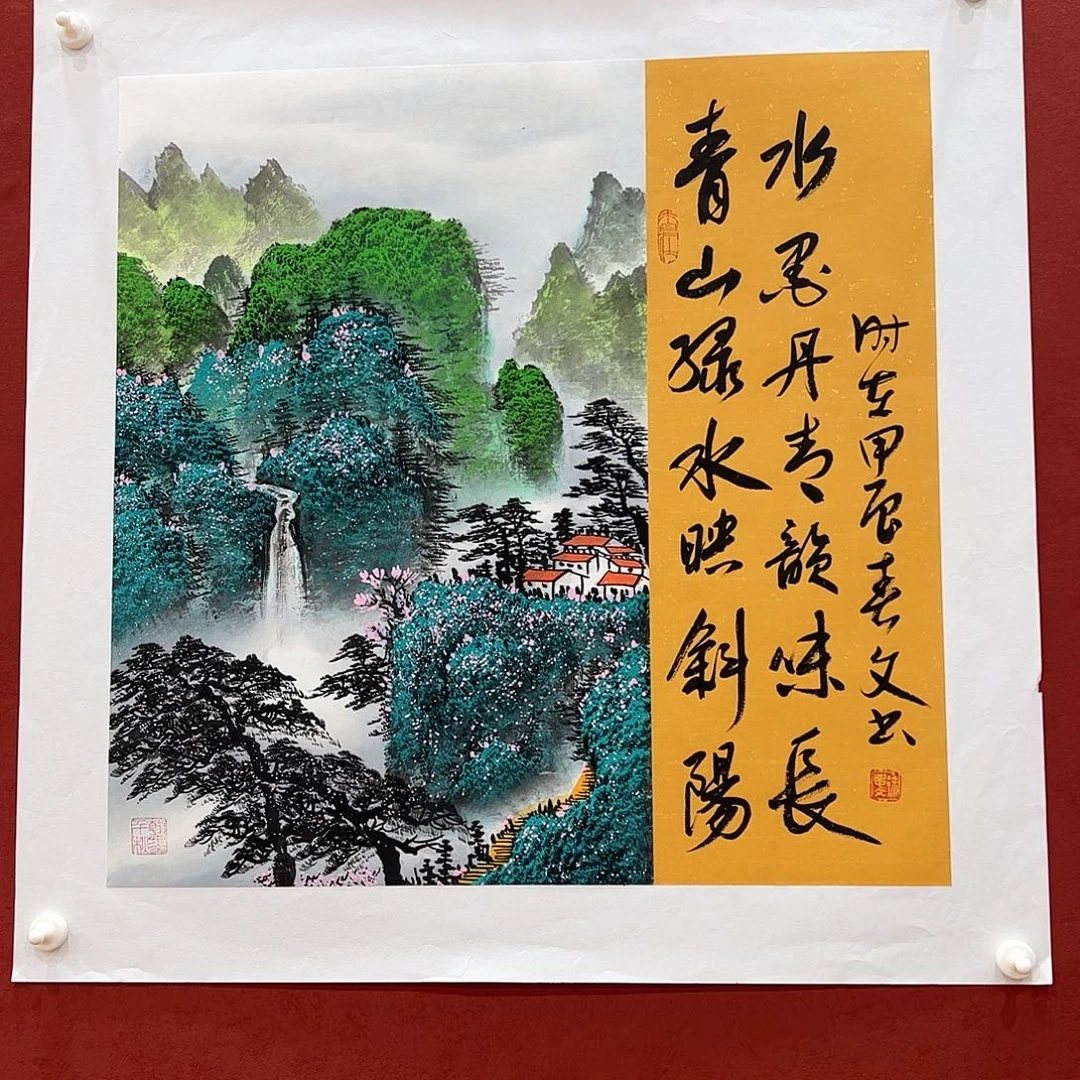 青山绿水映斜陽
水墨丹青韻味長
时在甲辰春文书